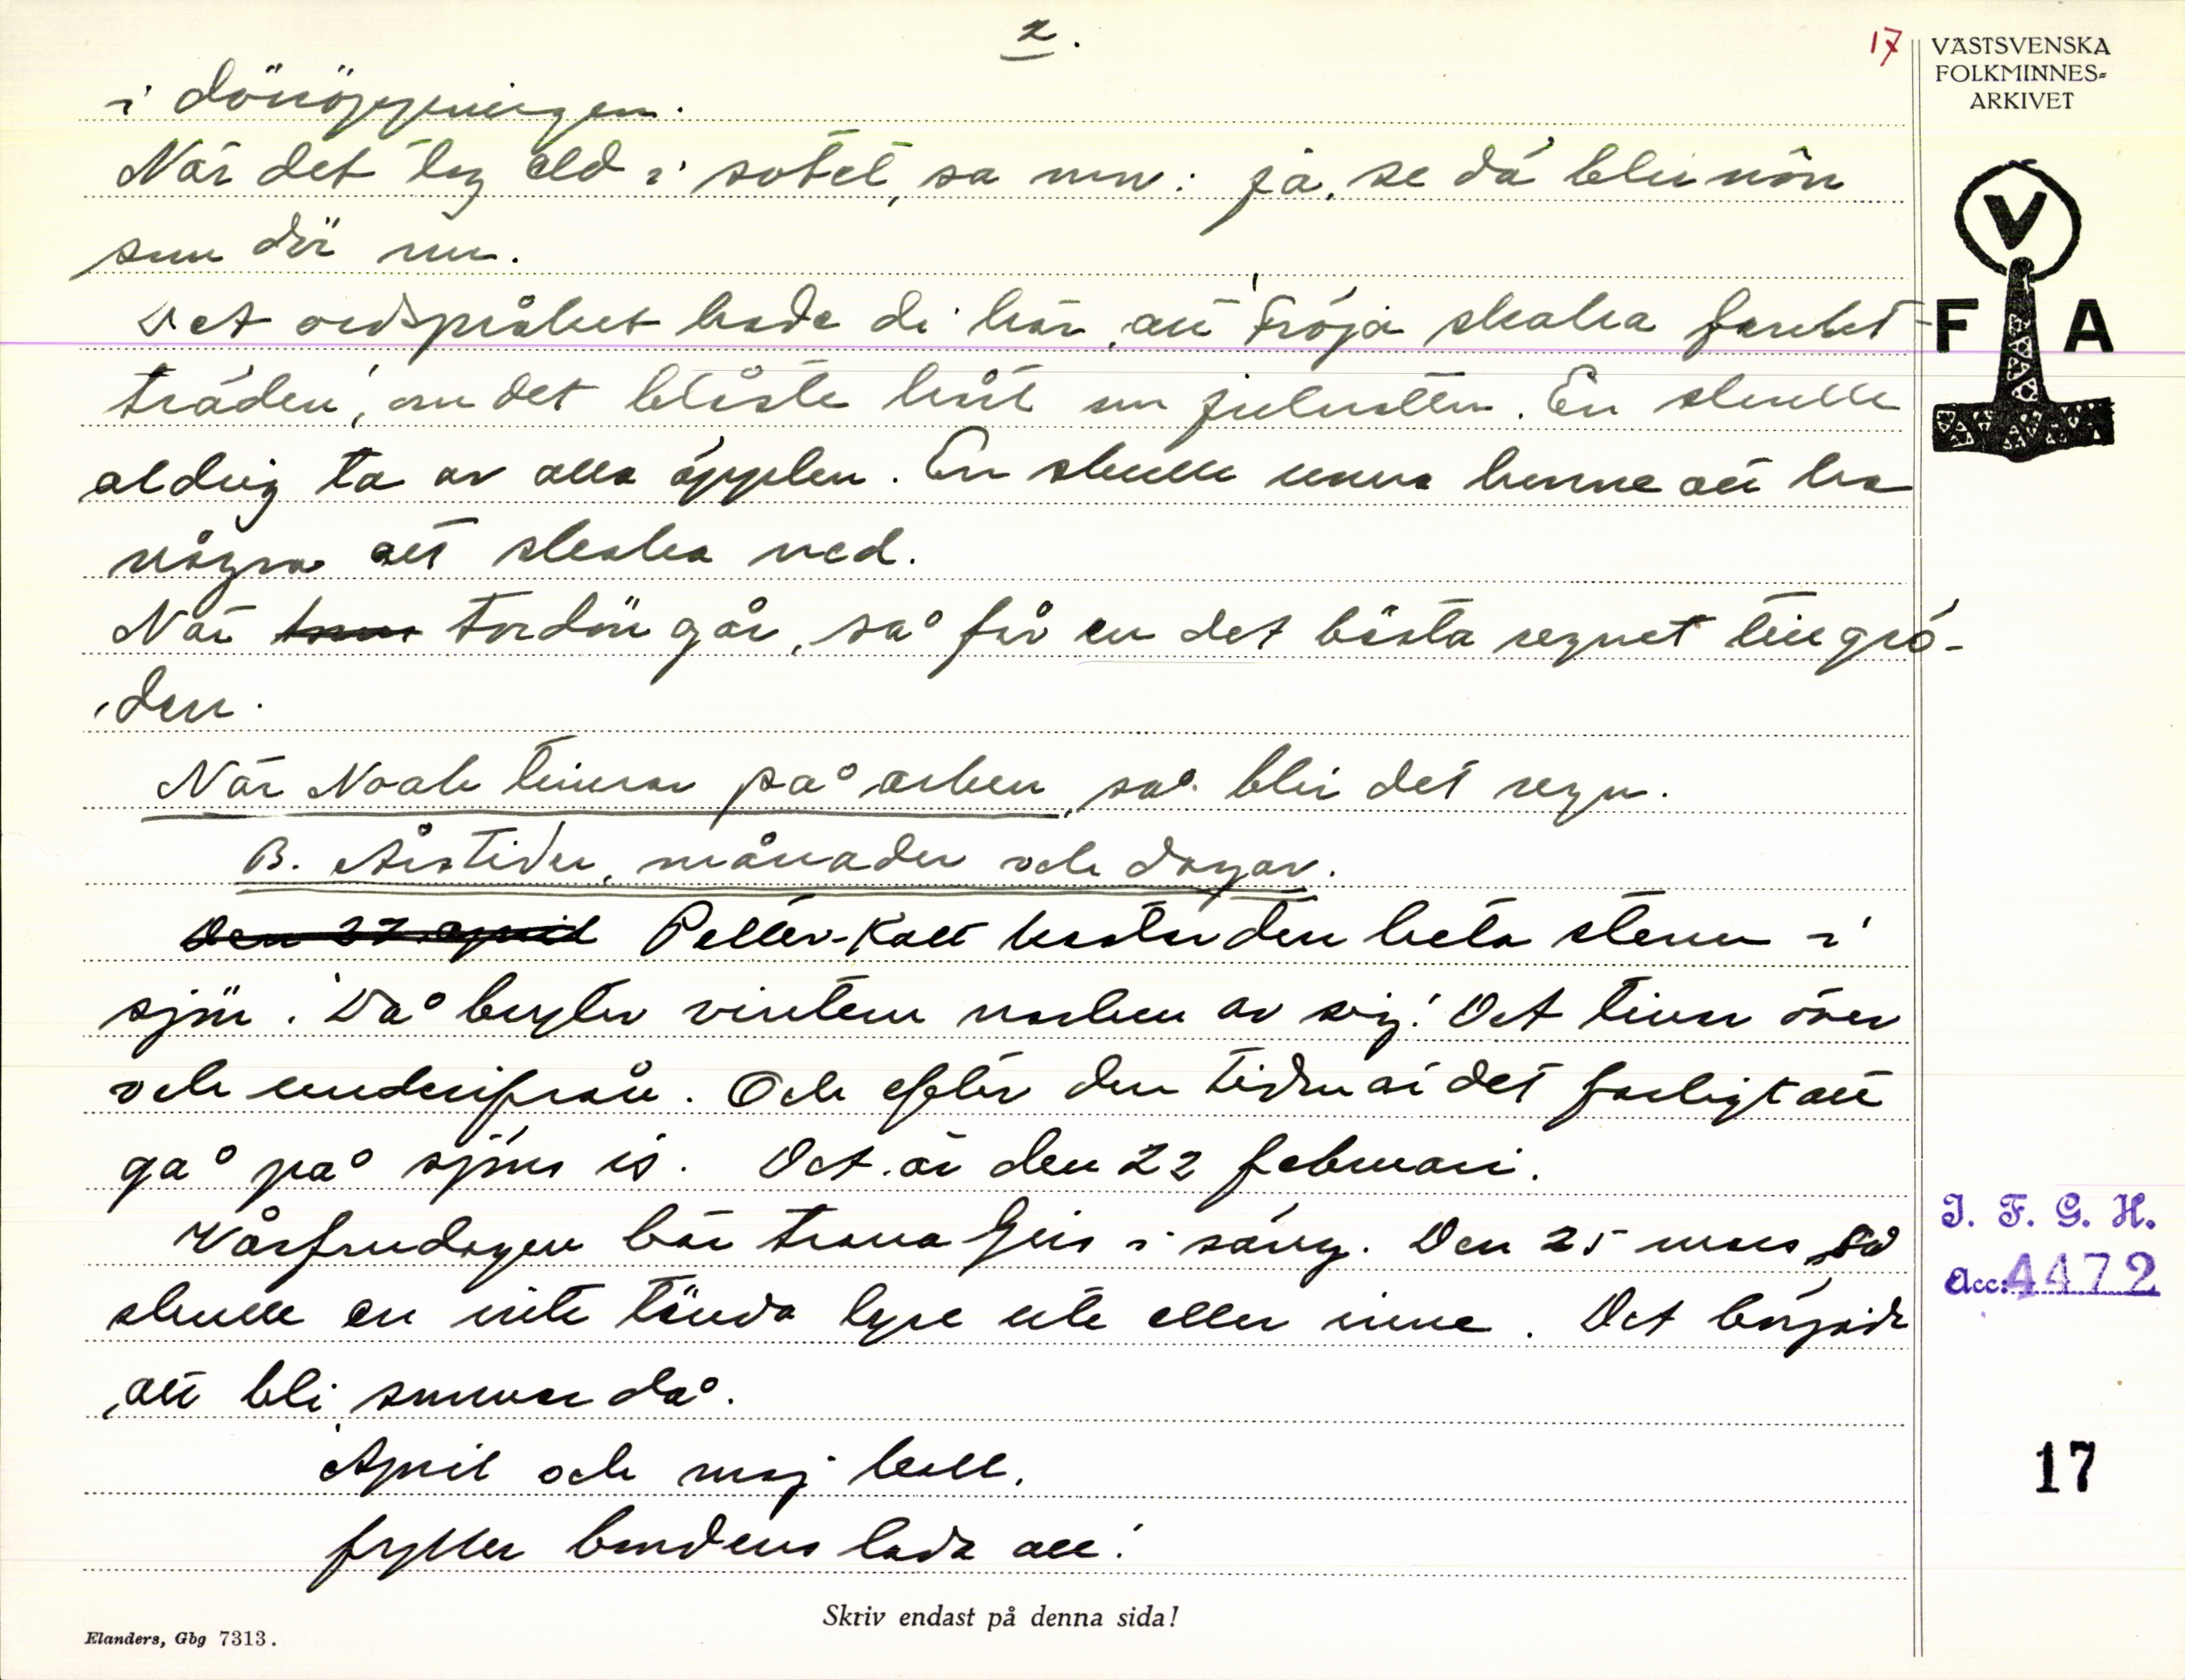 2.
17
VÄSTSVENSKA
FOLKMINNES-
ARKIVET
i dörröppningen.
När det tog eld i sotet, sa mor: ja, se då blir nôn
som dör nu.
Det ordspråket hade di här, att 'Fröja skakar frukt-
träden', om det blåste hårt om julnatten. En skulle
aldrig ta av alla äpplen. En skulle unna henne att ha
några att skaka ned.
När tordön går, så får en det bästa regnet till grö-
den.
När Noak timrar på arken, så blir det regn.
B. Årstider, månader och dagar.
Den 27 april Petter-Katt kastar den heta stenen i
sjön. 'Då bryter vintern nacken av sig.' Det tinar över
och underifrån. Och efter den tiden är det farligt att
gå på sjöns is. Det är den 22 februari.
Vårfrudagen bär trana ljus i säng. Den 25 mars, så
skulle en inte tända lyse ute eller inne. Det började
att bli sommar då.
'April och maj kall,
fyller bondens lada all.'
V
F A
I. F. G. H.
Acc: 4472
17
Skriv endast på denna sida!
Elanders, Gbg 7313.